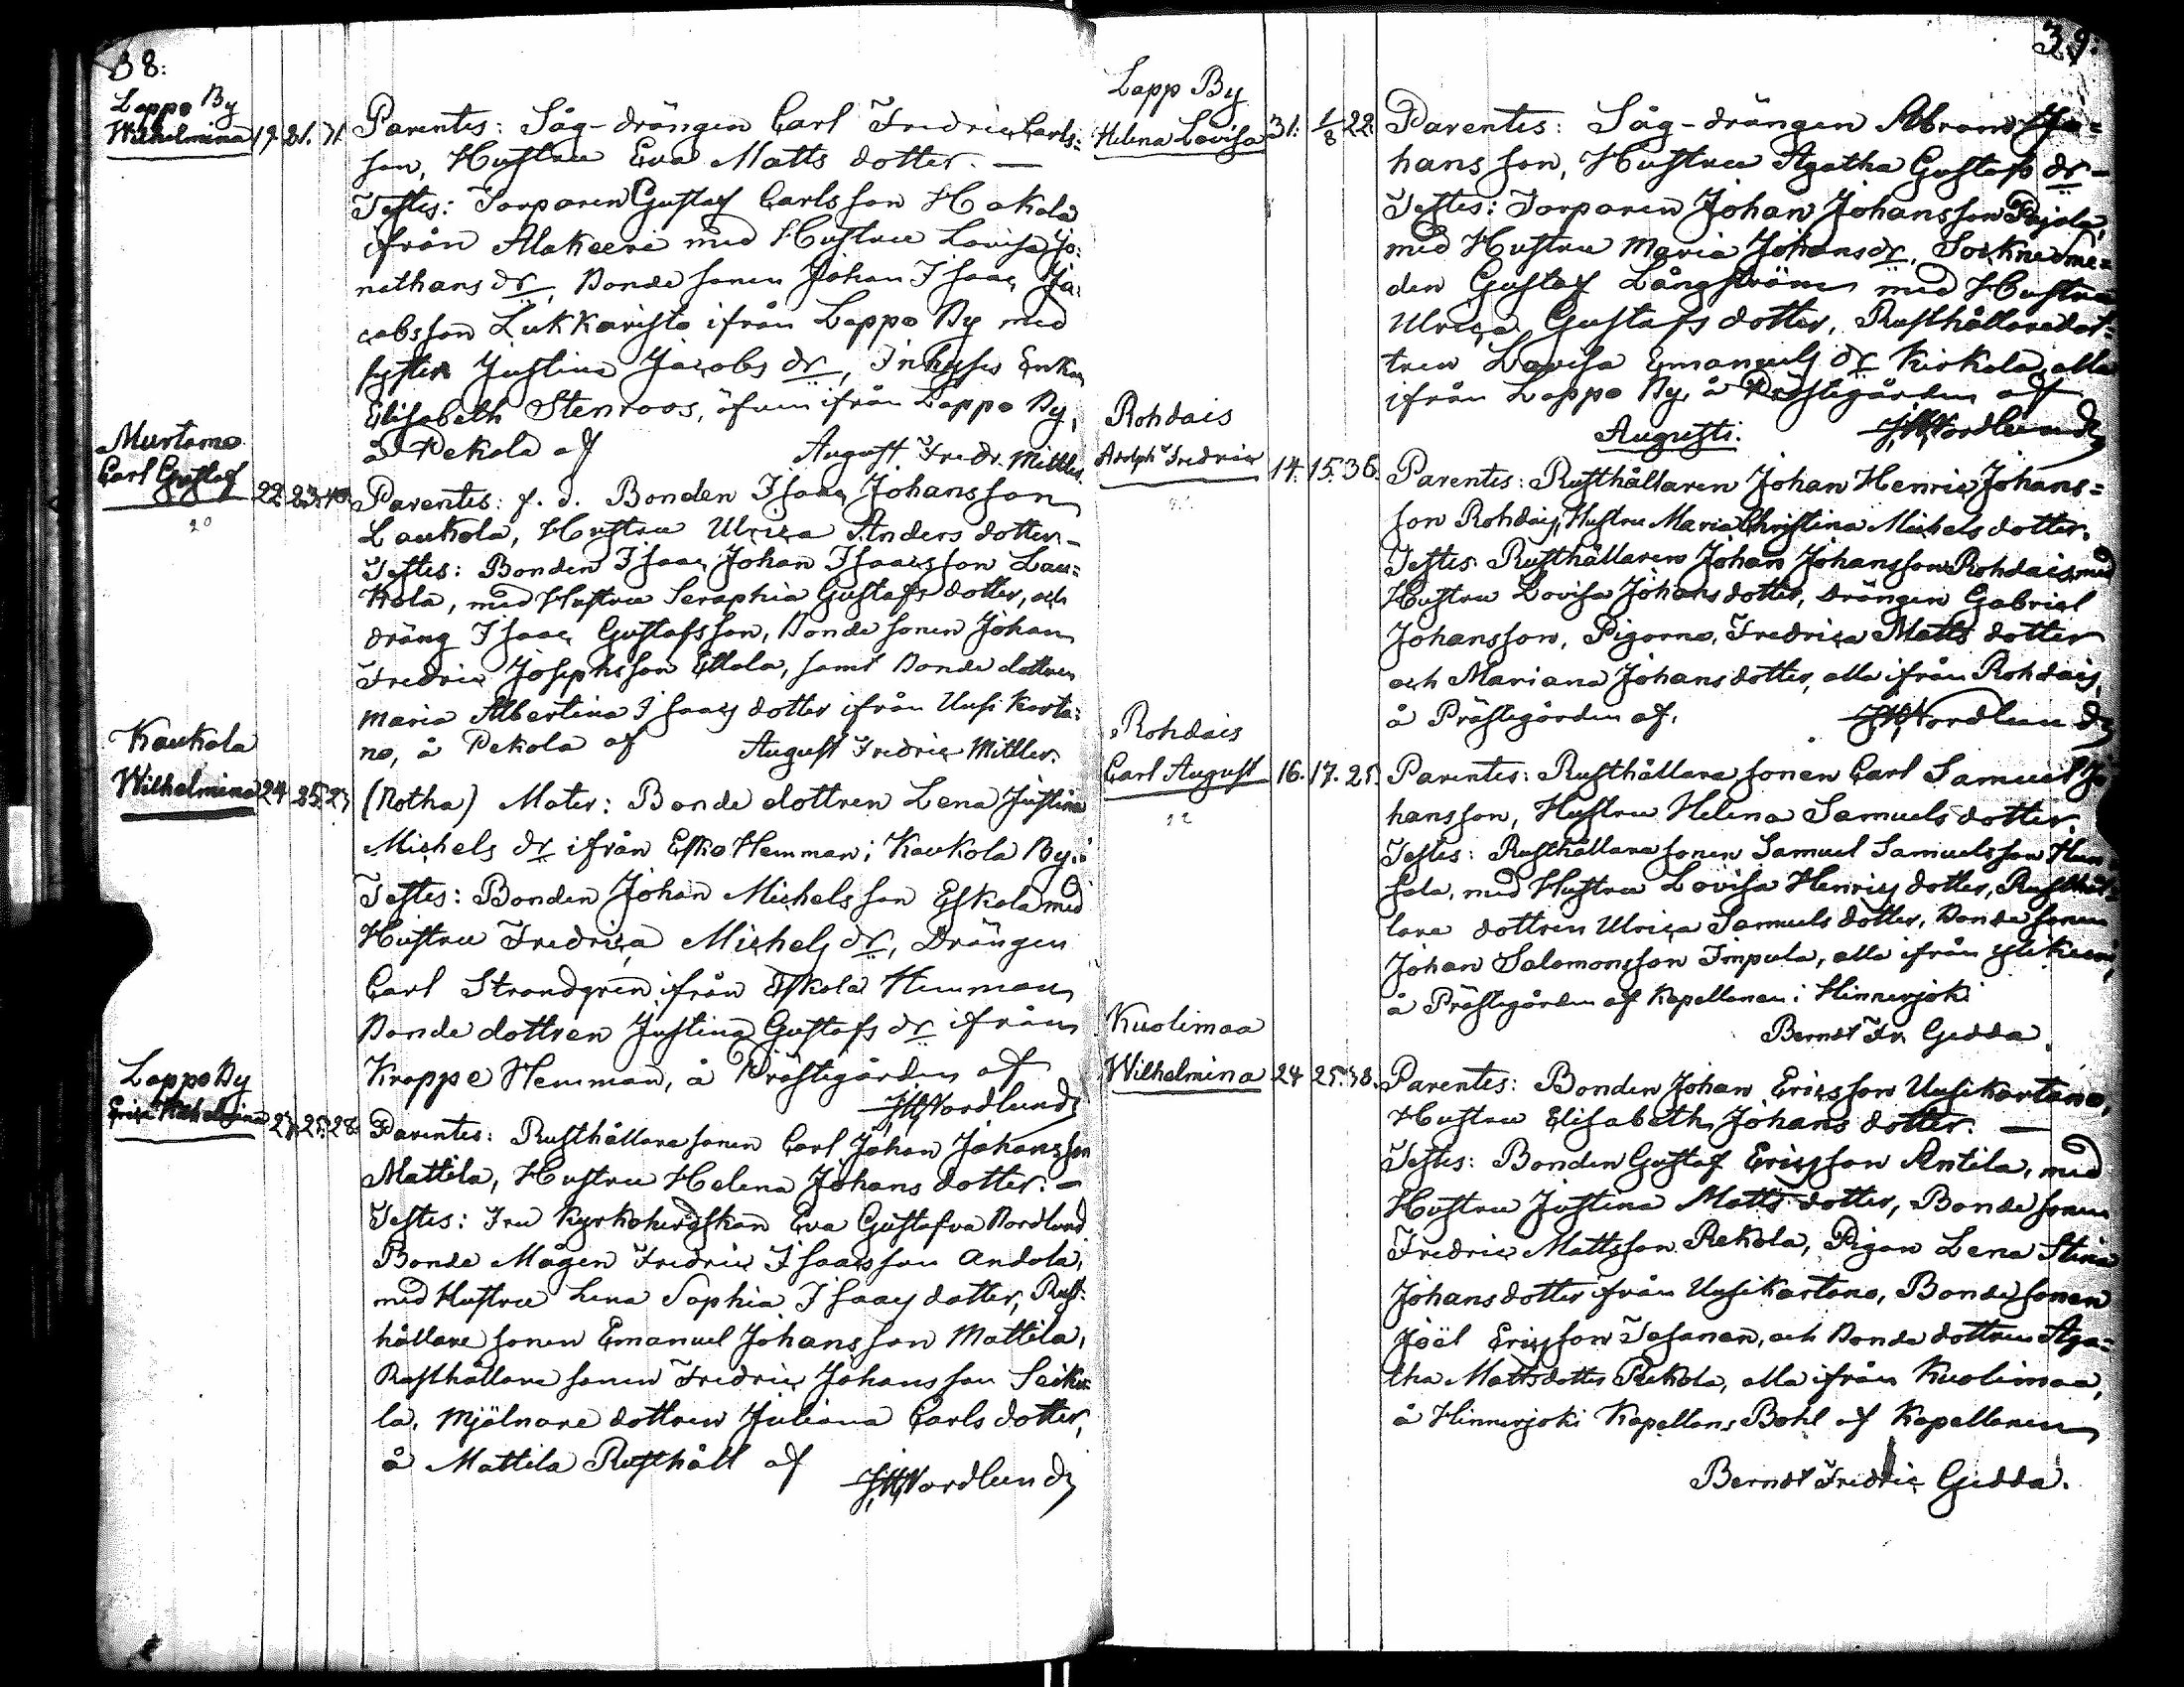 38:
Lappo By
Wilhelmina 19. 21. 31.
Parentes: Såg-drängen Carl Fredric Carls-
son, Hustru Eva Matts dotter. —
Testes: Torparen Gustaf Carlsson Hakola
ifrån Alakeeri med Hustru Lovisa Jo-
nathans dr, Bonde sonen Johan Isaac Ja-
cobsson Lukkaristo ifrån Lappo By med
syster Justina Jacobs dr, Inhyses Enkan
Elisabeth Stenroos, äfven ifrån Lappo By,
å Pekola af August Fredr. Mittler.
Murtamo
Carl Gustaf 22. 23. 40.
20
Parentes: f. d. Bonden Isaac Johansson
Laukola, Hustru Ulrica Anders dotter. –
Testes: Bonden Isaac Johan Isaacsson Lau-
kola, med Hustru Seraphia Gustafs dotter, och
dräng Isaac Gustafsson, Bonde sonen Johan
Fredric Josephsson Ettala, samt Bonde dottren
Maria Albertina Isaacs dotter ifrån Uusi Karta-
no, å Pekola af August Fredric Mittler.
Kaukola
Wilhelmina 24. 25. 27
(Notha) Mater: Bonde dottren Lena Justina
Michels dr ifrån Esko Hemman i Kaukola By.
Testes: Bonden Johan Michelsson Eskola med
Hustru Fredrica Michels dr, Drängen
Carl Strandgren ifrån Eskola Hemman
Bonde dottren Justina Gustafs dr ifrån
Knappe Hemman, å Prästegården af
JHNordlund
Lappo By
Erica Wilhelmina 23. 25. 28.
Parentes: Rusthållare sonen Carl Johan Johansson
Mattila, Hustru Helena Johans dotter. –
Testes: Fru Kyrkoherdskan Eva Gustafva Nordlund
Bonde Mågen Fredric Isaacsson Andola,
med Hustru Lena Sophia Isaacs dotter, Rust-
hållare sonen Emanuel Johansson Mattila,
Rusthållare sonen Fredric Johansson Seiku-
la, Mjölnare dottren Juliana Carls dotter,
å Mattila Rusthåll af JHNordlund
39.
Lapp By
Helena Lovisa 31. 1/8 22.
Parentes: Såg-drängen Abram Jo-
hansson, Hustru Agatha Gustafs dr –
Testes: Torparen Johan Johansson Pajola,
med Hustru Maria Johans dr, Socknesme-
den Gustaf Långström med Hustru
Ulrica Gustafs dotter, Rusthållaredot-
tren Lovisa Emanuels dr Kirkola, alla
ifrån Lappo By, å Prästegården af
Augusti. JHNordlund
Rohdais
Adolph Fredric 14. 15. 36.
Parentes: Rusthållaren Johan Henric Johans-
son Rohdais, Hustru Maria Christina Michels dotter.
Testes: Rusthållaren Johan Johansson Rohdais, med
Hustru Lovisa Johans dotter, Drängen Gabriel
Johansson, Pigorna, Fredrica Matts dotter
och Mariana Johans dotter, alla ifrån Rohdais,
å Prästegården af. JHNordlund
Rohdais
Carl August 16. 17. 25.
Parentes: Rusthållare sonen Carl Samuel Jo-
hansson, Hustru Helena Samuels dotter.
Testes: Rusthållare sonen Samuel Samuelsson Hun
sala, med Hustru Lovisa Henrics dotter, Rusthål-
lare dottren Ulrica Samuels dotter, Bonde sonen
Johan Salomonsson Impula, alla ifrån
å Prästegården af Kapellanen i Hinnerjoki
Berndt Fr. Gedda.
Kuolimaa
Wilhelmina 24. 25. 38.
Parentes: Bonden Johan Ericsson Uusikartano,
Hustru Elisabeth Johans dotter. —
Testes: Bonden Gustaf Ericsson Antila, med
Hustru Justina Matts dotter, Bonde sonen
Fredric Mattsson Rekola, Pigan Lena Stina
Johans dotter ifrån Uusikartano, Bonde sonen
Joël Ericsson Tosanen, och Bonde dottren Aga-
tha Matts dotter Rekola, alla ifrån Kuolimaa,
å Hinnerjoki Kapellans Bohl af Kapellanen
Berndt Fredric Gedda.